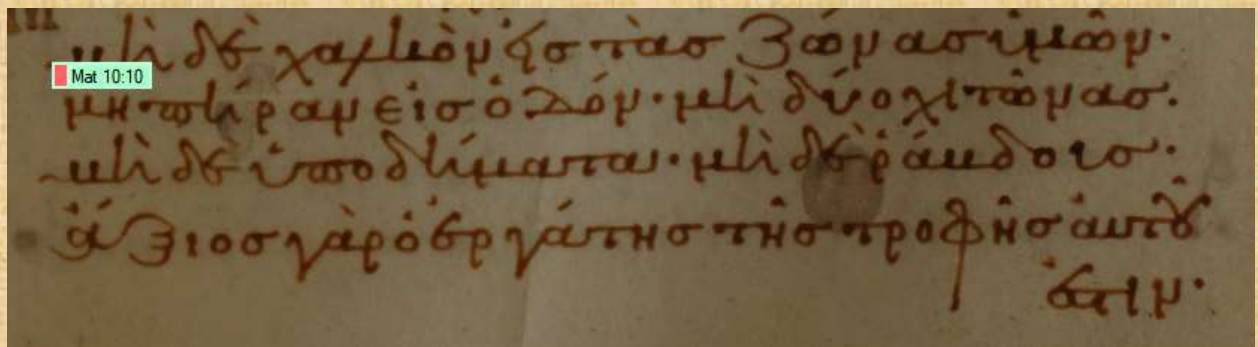 μὴ δὲ χαλκὸν εἰς τὰς ζώνας ἡμῶν·
Mat 10:10
μη πήραν εἰς ὁδόν· μὴ δύο χιτῶνας.
μὴ δὲ ὑποδήματα· μὴ δὲ ῥάβδοις·
ἄξιος γὰρ ὁ ἐργάτης τῆς τροφῆς αὐτοῦ
ἐστιν·